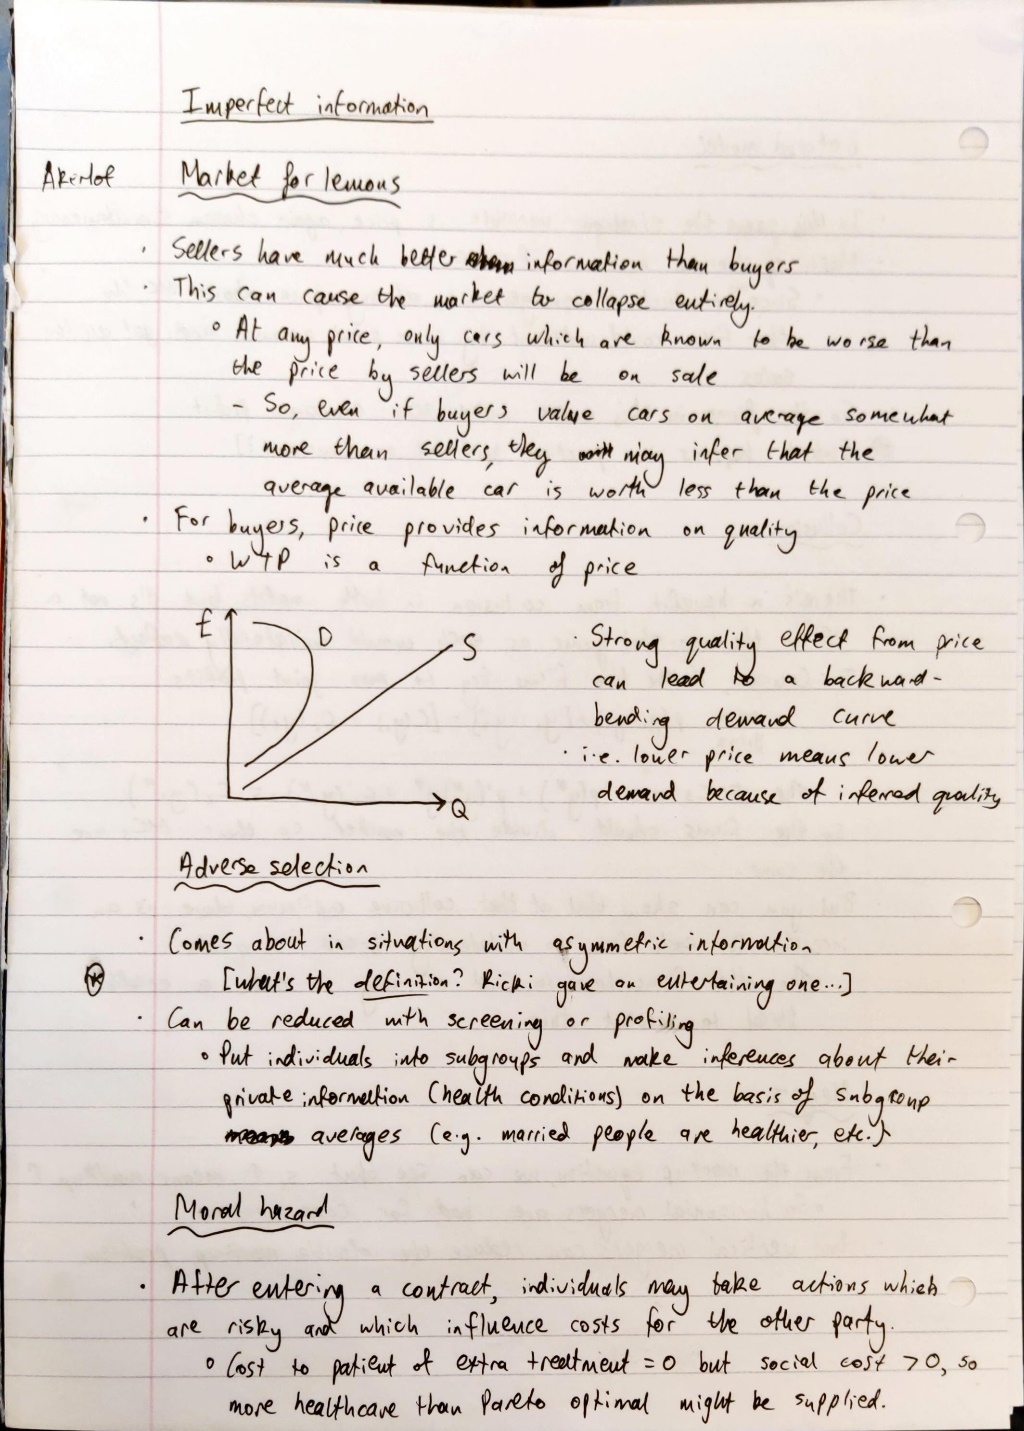 Imperfect information
Akerlof Market for lemons
· Sellers have much better information than buyers
· This can cause the market to collapse entirely.
∘ At any price, only cars which are known to be worse than
the price by sellers will be on sale
- So, even if buyers value cars on average somewhat
more than sellers, they may infer that the
average available car is worth less than the price
· For buyers, price provides information on quality
∘ WTP is a function of price
£ D S Q
· Strong quality effect from price
can lead to a backward-
bending demand curve
· i.e. lower price means lower
demand because of inferred quality
Adverse selection
· Comes about in situations with asymmetric information
[what's the definition? Ricki gave an entertaining one...]
· Can be reduced with screening or profiling
∘ Put individuals into subgroups and make inferences about their
private information (health conditions) on the basis of subgroup
averages (e.g. married people are healthier, etc.)
Moral hazard
· After entering a contract, individuals may take actions which
are risky and which influence costs for the other party.
∘ Cost to patient of extra treatment = 0 but social cost > 0, so
more healthcare than Pareto optimal might be supplied.